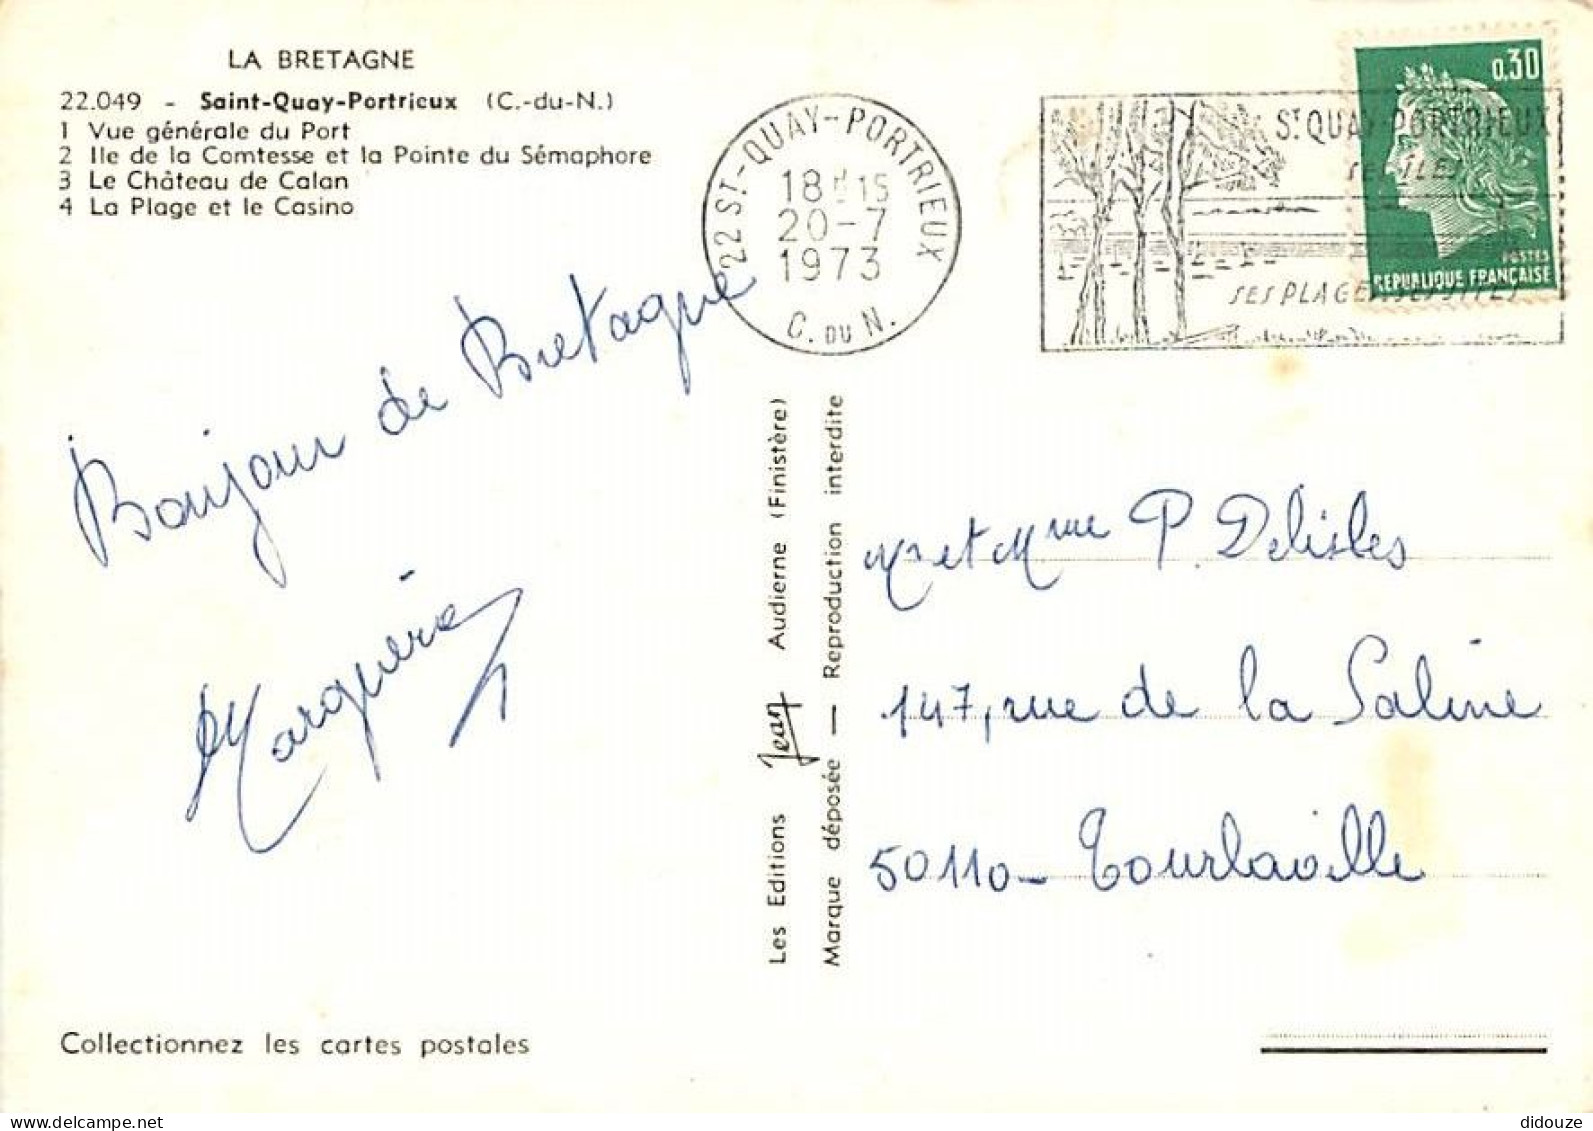 LA BRETAGNE
22.049 - Saint-Quay-Portrieux (C.-du-N.)
1 Vue générale du Port
2 Ile de la Comtesse et la Pointe du Sémaphore
3 Le Château de Calan
4 La Plage et le Casino
22 ST-QUAY-PORTRIEUX
18H15
20-7
1973
C. DU N.
ST QUAY PORTRIEUX
SES ILES
SES PLAGES SES SITES
0,30
POSTES
REPUBLIQUE FRANÇAISE
Bonjour de Bretagne
Les Editions Jean Audierne (Finistère)
Marque déposée — Reproduction interdite
Mr et Mme P. Delisles
147, rue de la Saline
50110 - Tourlaville
Collectionnez les cartes postales
didouze